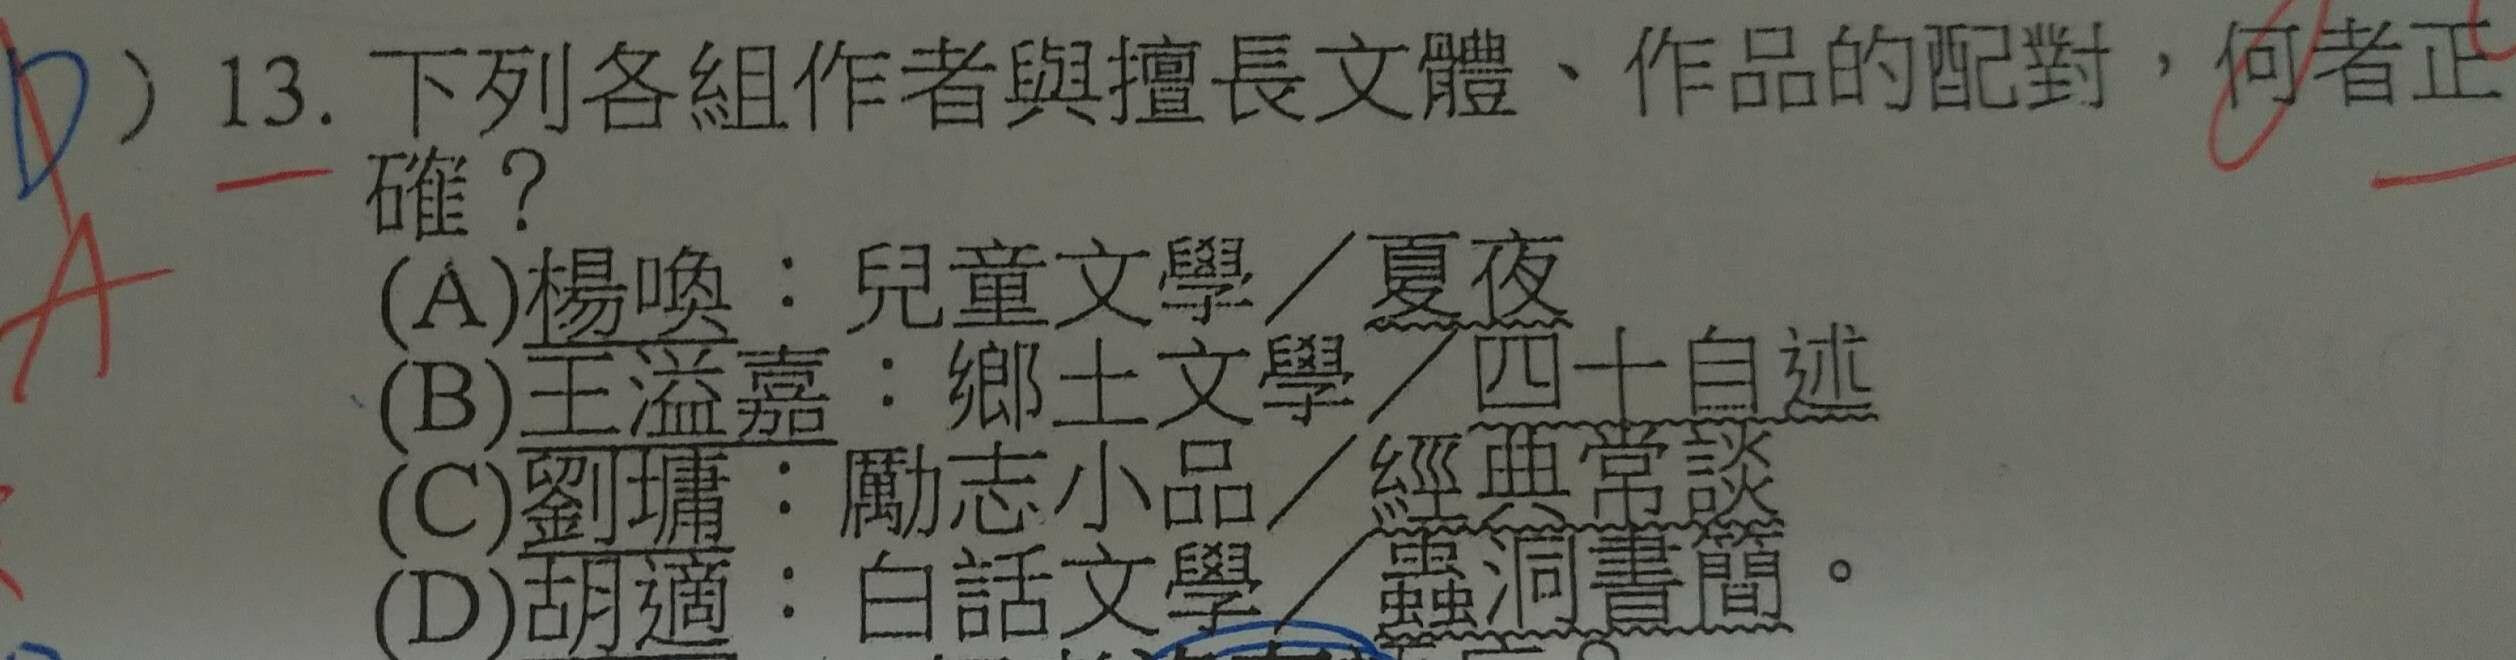 D）13. 下列各組作者與擅長文體、作品的配對，何者正
確？
A
(A)楊喚：兒童文學／夏夜
(B)王溢嘉：鄉土文學／四十自述
(C)劉墉：勵志小品／經典常談
(D)胡適：白話文學／蟲洞書簡。